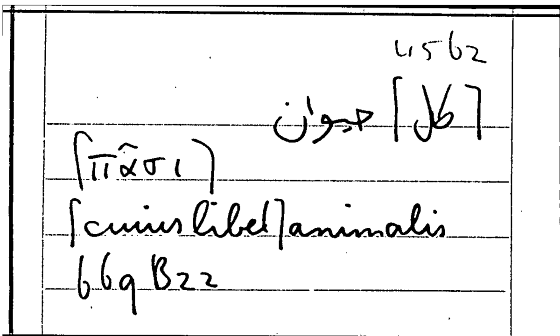 4562
[كل] حيوان
[πᾶσι]
[cuius libet] animalis
669 B22